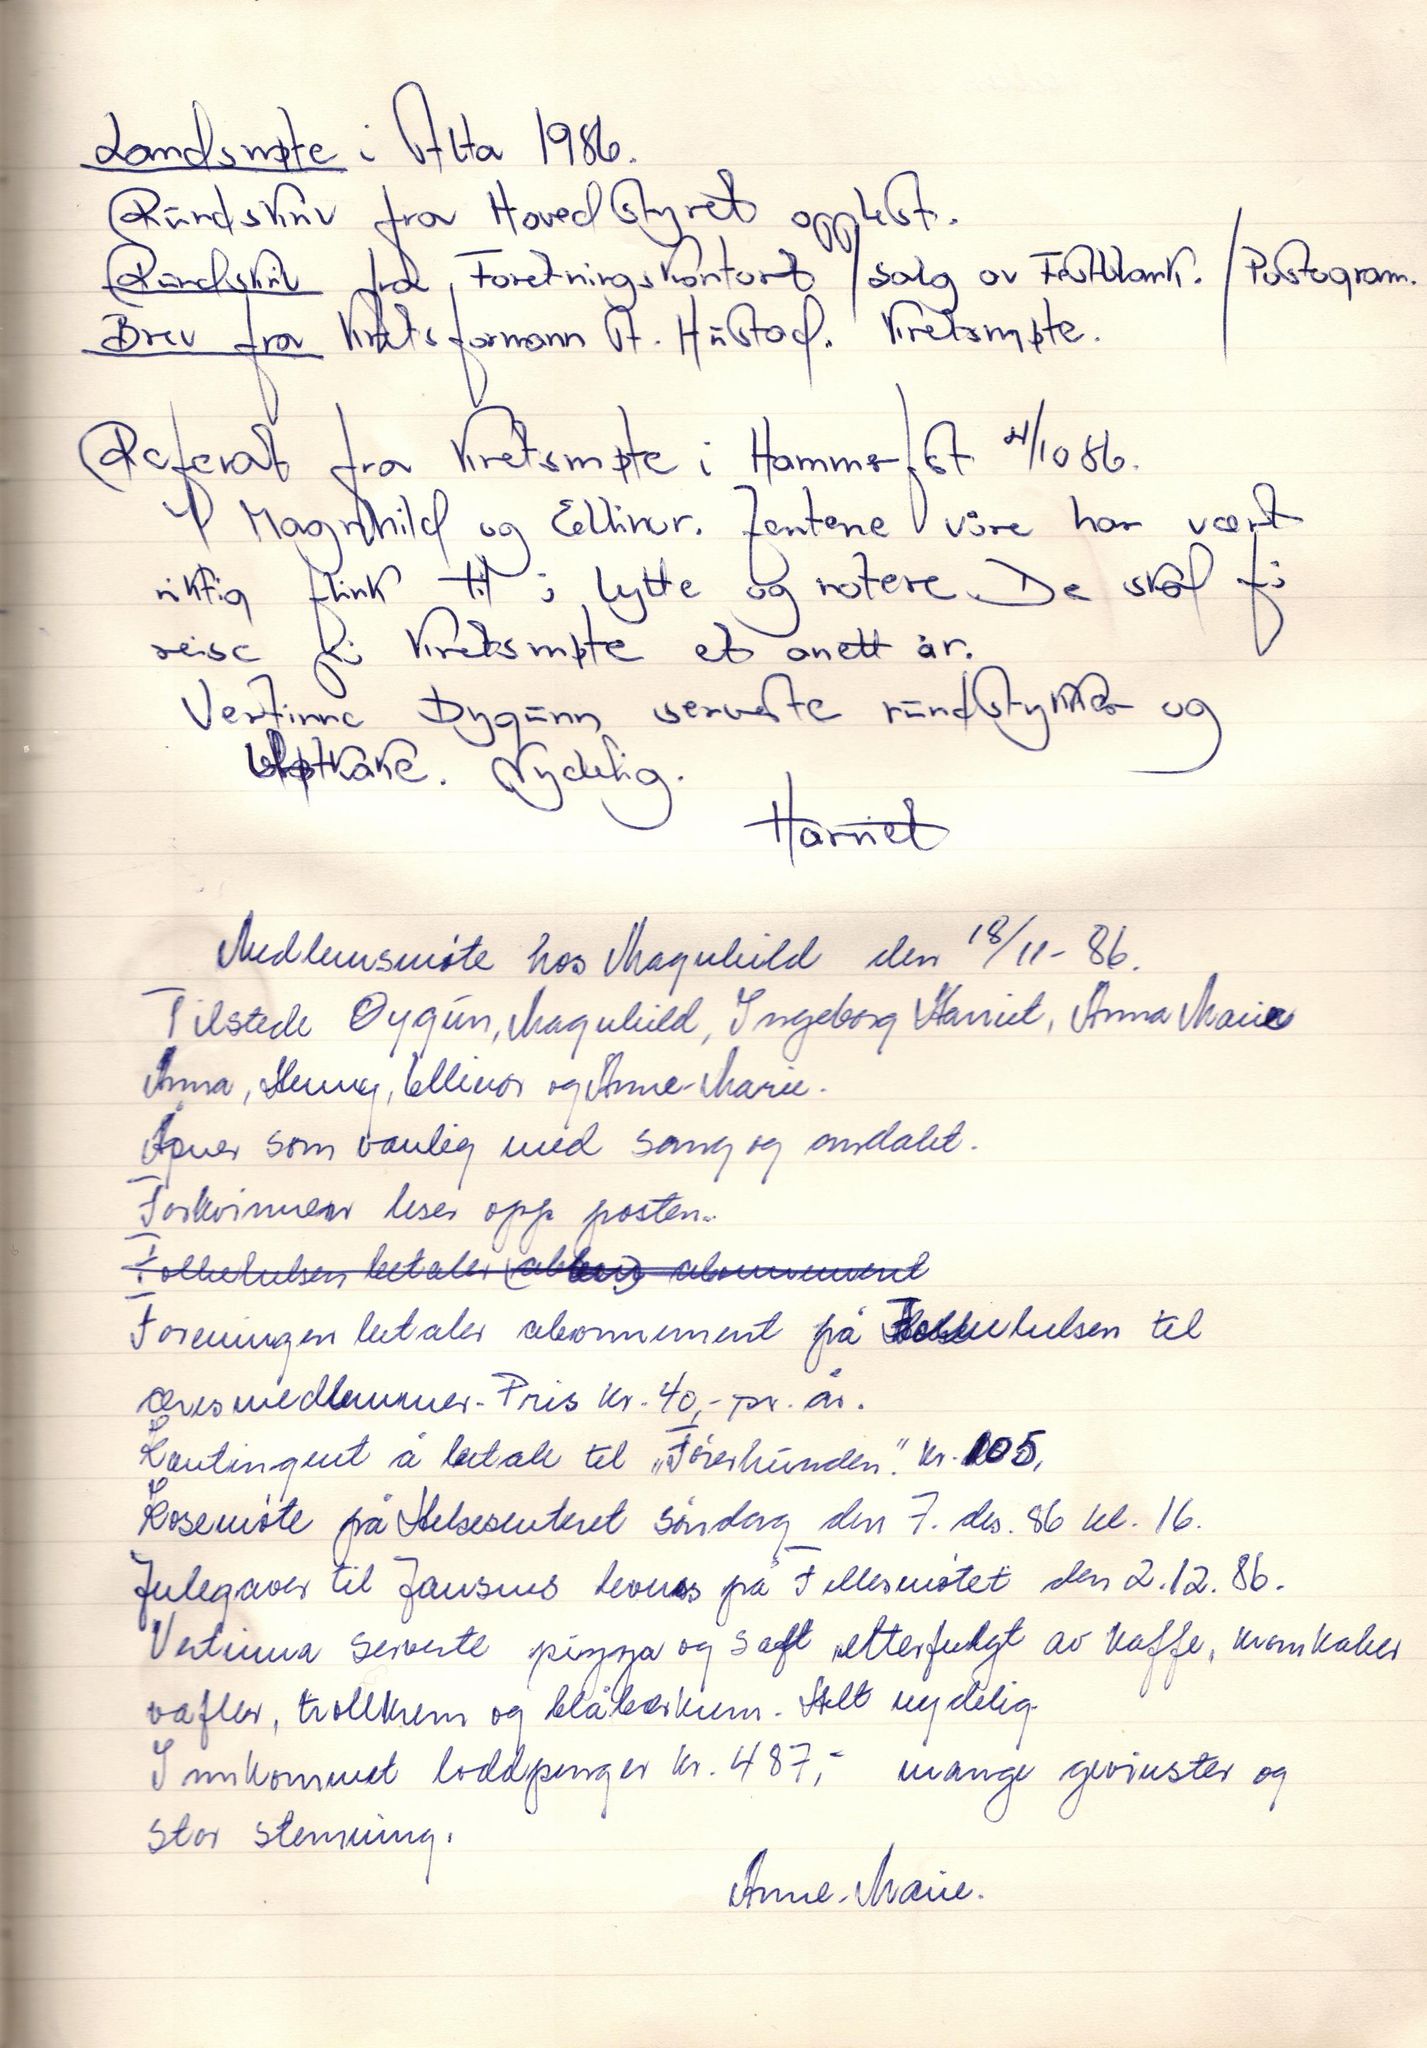 Landsmøte i Alta 1986.
Rundskriv fra Hovedstyret opplest.
Rundskriv fra Foretningskontoret / salg av Festblank. / Postogram.
Brev fra Kretsformann A. Hustad. Kretsmøte.
Referat fra Kretsmøte i Hammerfest 4/10 86.
V Magnhild og Ellinor. Jentene våre har vært
riktig flink til å lytte og notere. De skal få
reise på Kretsmøte et anett år.
Vertinne Øygunn serverte rundstykker og
bløtkake. Nydelig.
Harriet
Medlemsmöte hos Magnhild den 18/11-86.
Tilstede Øygun, Magnhild, Ingeborg Harriet, Anna Marie
Anna, Henny, Ellinor og Anne-Marie.
Åpner som vanlig med sang og andakt.
Forkvinnen leser opp posten.
Folkehelsen betaler abonnement
Foreningen betaler abonnement på Folkehelsen til
æresmedlemmer. Pris kr. 40,- pr. år.
Kontingent å betale til „Förerhunden." kr. 105,
Kosemöte på Helsesenteret söndag den 7. des. 86 kl. 16.
Julegaver til Jansnes leveres på Fellesmötet den 2.12.86.
Vertinna serverte pizza og saft etterfulgt av kaffe, kremkaker
vafler, trollkrem og blåbærkrem. Alt nydelig.
Innkommet loddpenger kr. 487,- mange gevinster og
stor stemning.
Anne-Marie.